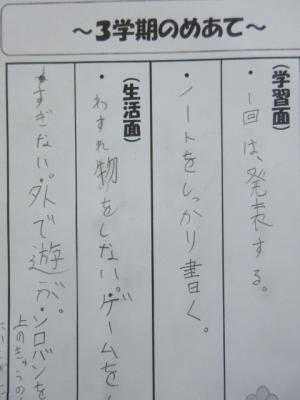 ～3学期のめあて～
(学習面)
・一回は、発表する。
・ノートをしっかり書く。
(生活面)
・わすれ物をしない。ゲームを
すぎない。外で遊が。ソロバンを
上のきゅうの